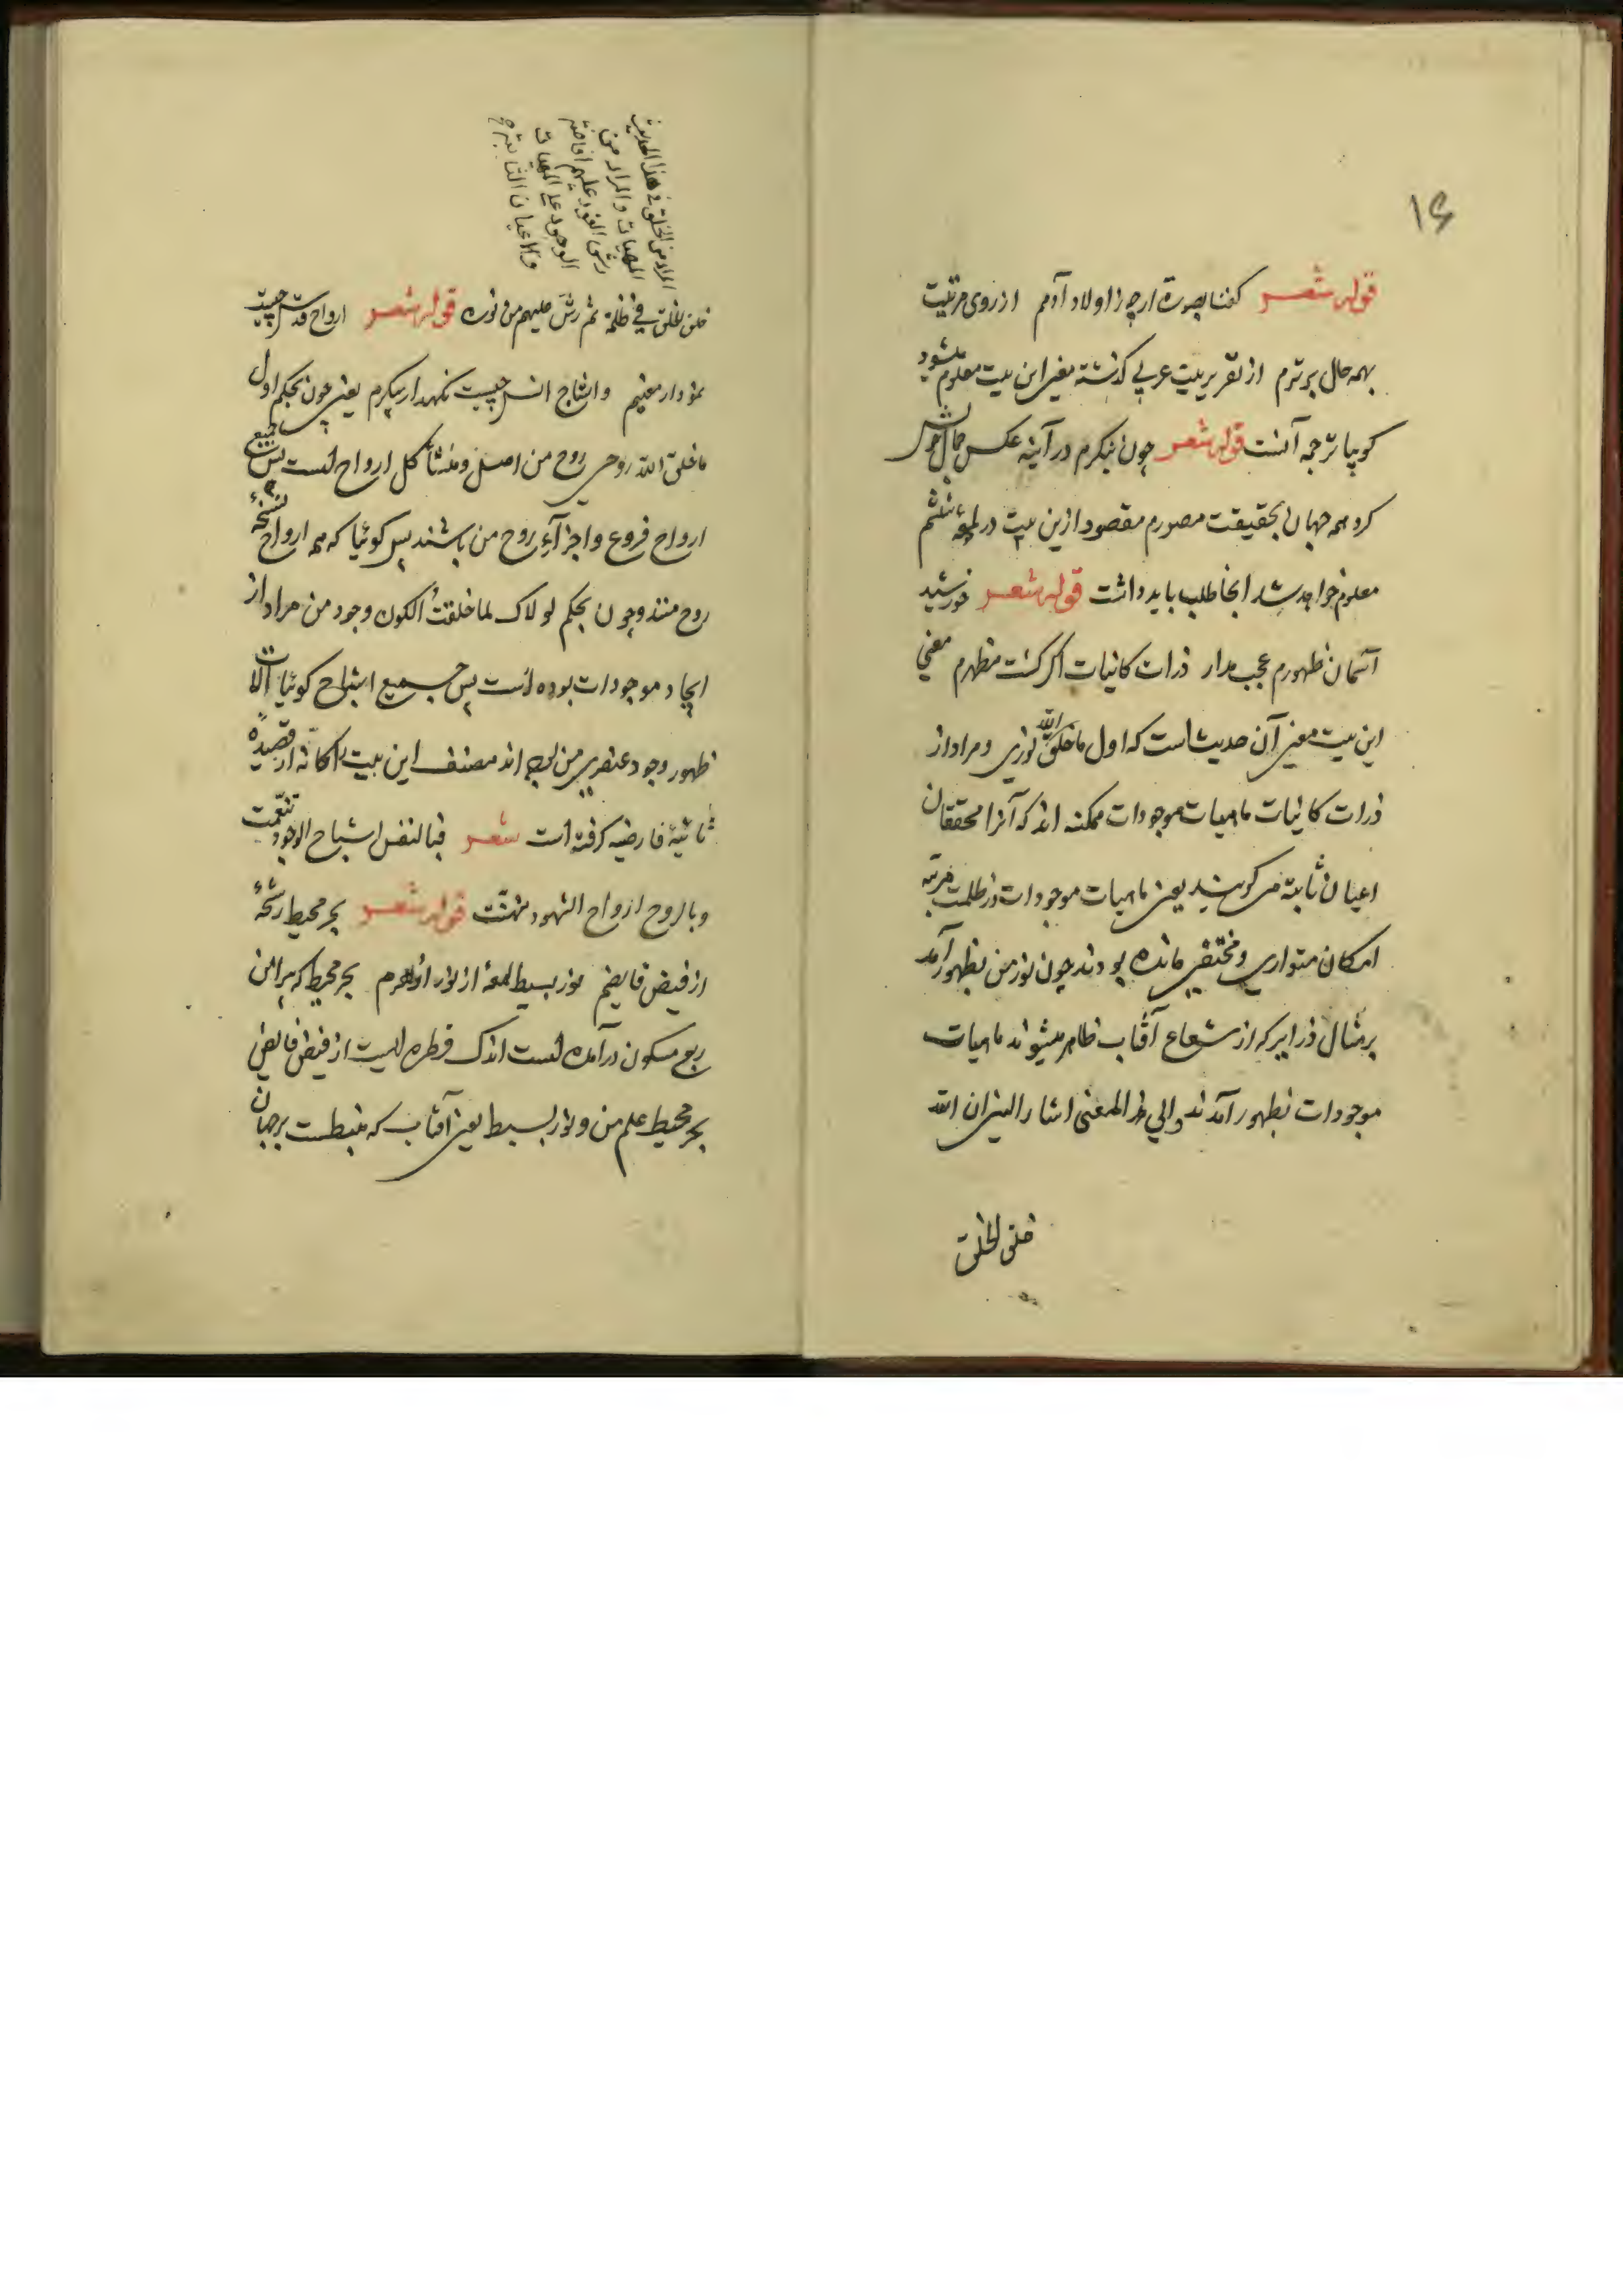 ۱۶
قوله شعر گفتا بصورت ارچه ز اولاد آدمم از روی مرتبت
بهمه حال برترم از تقریر بیت عربی گذشته معنی این بیت معلوم میشود
گویا ترجمه آنست قوله شعر چون بنگرم در آینه عکس جمال خویش
گردد همه جهان بحقیقت مصورم مقصود ازین بیت در لمعه ششم
معلوم خواهد شد انجا طلب باید داشت قوله شعر خورشید
آسمان ظهورم عجب مدار ذرات کاینات اگر گشت مظهرم معنی
این بیت معنی آن حدیث است که اول ما خلق الله نوری و مراد از
ذرات کاینات ماهیات موجودات ممکنه اند که آنرا محققان
اعیان ثابته می گویند یعنی ماهیات موجودات در ظلمت مرتبه
امکان متواری و مختفی مانده بودند چون نور من بظهور آمد
بر مثال ذرایر که از شعاع آفتاب ظاهر میشوند ماهیات
موجودات بظهور آمدند والی هذا المعنی اشار النبی ان الله
خلق الخلق
المراد من الخلق فی هذا الحدیث
المهیات والمراد من
رش النور علیهم افاضة
الوجود علی المهیات
والاعیان الثابتة
خلق الخلق فی ظلمة ثم رش علیهم من نوره قوله شعر ارواح قدس چیست
نمودار معنیم و اشباح انس چیست نگهدار پیکرم یعنی چون بحکم اول
ما خلق الله روحی روح من اصل و منشأ کل ارواح است پس جمیع
ارواح فروع و اجزآء روح من باشند پس گوئیا که همه ارواح نسخهٔ
روح منند و چون بحکم لولاک لما خلقت الکون وجود من مراد از
ایجاد موجودات بوده است پس جمیع اشباح گوئیا آلات
ظهور وجود عنصری من بوده اند مصنف این بیت را کانه از قصیدهٔ
تائیهٔ فارضیه گرفته است شعر فبالنفس اشباح الوجود تنعمت
وبالروح ارواح الشهود تهنت قوله شعر بحر محیط رشحهٔ
از فیض فایضم نور بسیط لمعهٔ از نور ازهرم بحر محیط که پیرامن
ربع مسکون درآمده است اندک قطره ایست از فیض فایض
بحر محیط علم من و نور بسیط یعنی آفتاب که منبسطست بر جهان